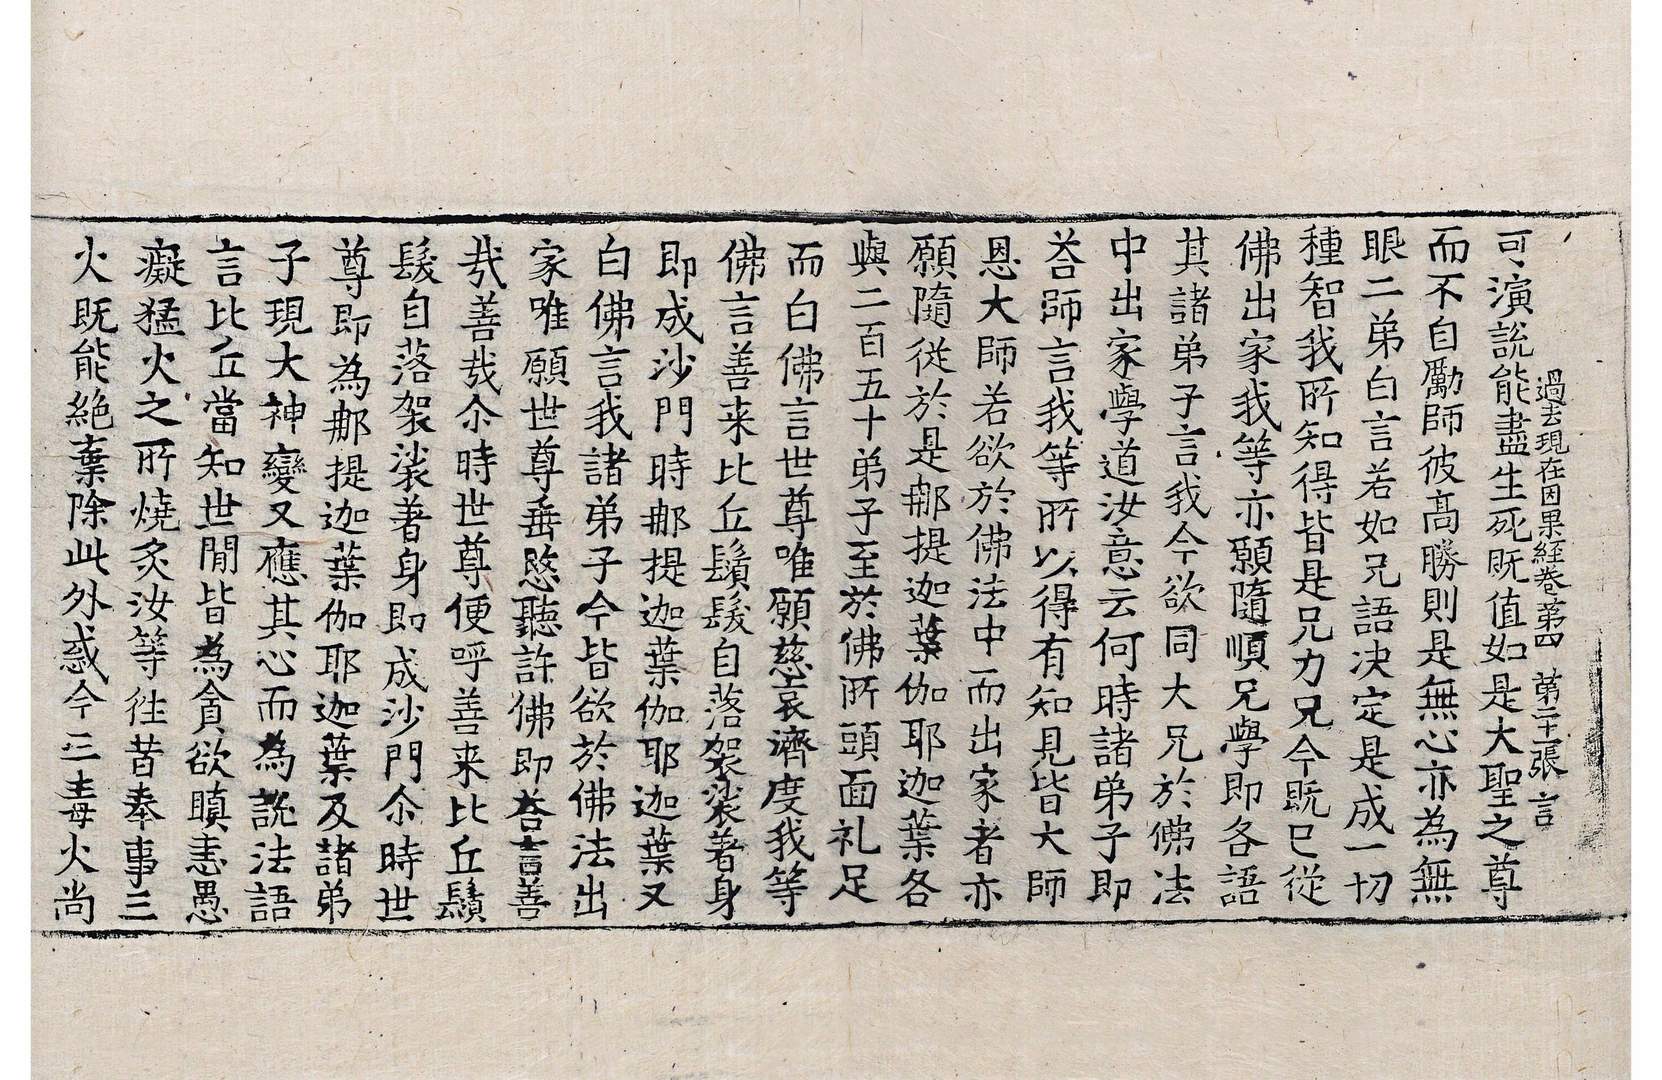 過去現在因果経卷苐四 苐二十一張 言
可演說能盡生死既值如是大聖之尊
而不自勵師彼髙勝則是無心亦為無
眼二弟白言若如兄語决定是成一切
種智我所知得皆是兄力兄今既已從
佛出家我等亦願隨順兄學即各語
其諸弟子言我今欲同大兄於佛法
中出家學道汝意云何時諸弟子即
荅師言我等所以得有知見皆大師
恩大師若欲於佛法中而出家者亦
願隨從於是那提迦葉伽耶迦葉各
與二百五十弟子至於佛所頭面礼足
而白佛言世尊唯願慈哀濟度我等
佛言善来比丘鬚髮自落袈裟著身
即成沙門時那提迦葉伽耶迦葉又
白佛言我諸弟子今皆欲於佛法出
家唯願世尊垂愍聽許佛即荅言善
哉善哉尒時世尊便呼善来比丘鬚
髮自落袈裟著身即成沙門尒時世
尊即為那提迦葉伽耶迦葉及諸弟
子現大神變又應其心而為說法語
言比丘當知世間皆為貪欲瞋恚愚
癡猛火之所燒炙汝等往昔奉事三
火既能絶棄除此外惑今三毒火尚